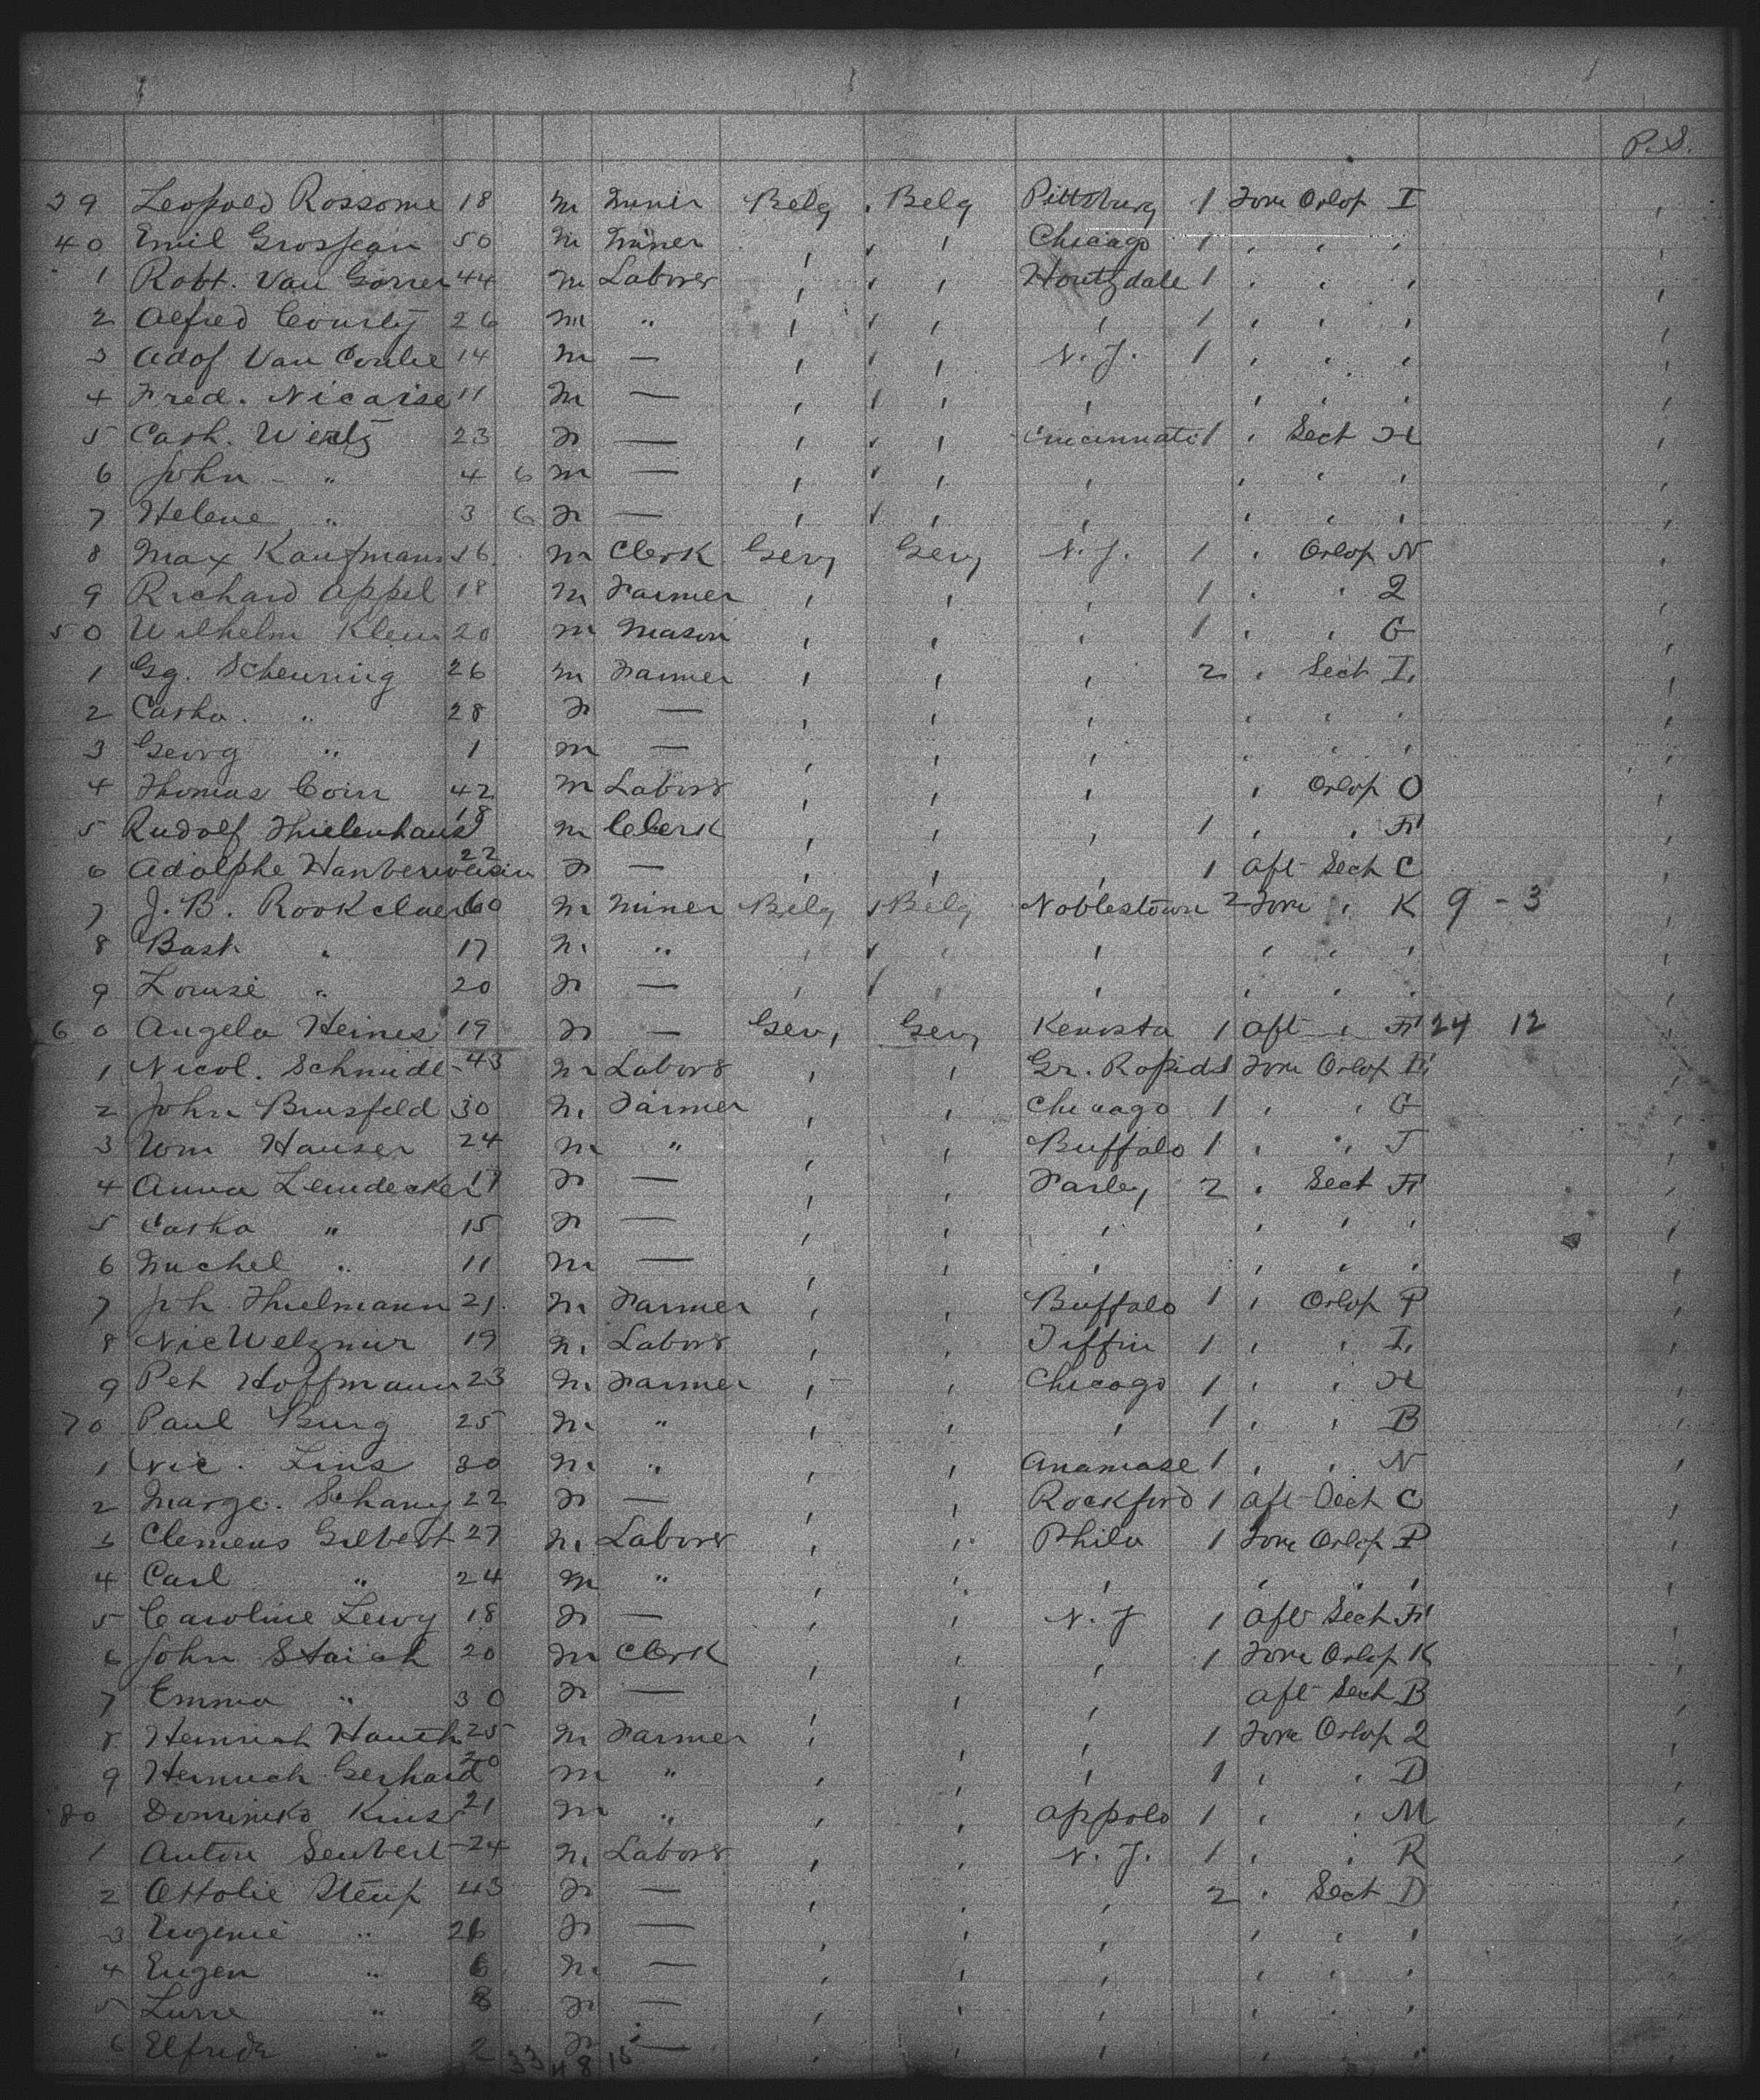 P.S.
39 Leopold Rossome 18 m Miner Belg Belg Pittsburg 1 Fore Orlop I
40 Emil Grosjean 50 m Miner , , Chicago 1 , , ,
1 Robt. Van Gorrer 44 m Laborer , , Houtzdale 1 , , ,
2 Alfred 26 m " , , , 1 , , ,
3 Adof Van 14 m — , , N.J. 1 , , ,
4 Fred. Nicaise 11 m — , , , , , ,
5 Cath. Wertz 23 F — , , Cincinnati 1 , Sect H
6 John " 4 6 m — , , , , , ,
7 Helene " 3 6 F — , , , , , ,
8 Max Kaufmann 16 m Clerk Gery Gery N.J. 1 , Orlop N
9 Richard Appel 18 m Farmer , , , 1 , , Q
50 Wilhelm Klein 20 m Mason , , , 1 , , G
1 Gg. Scheuring 26 m Farmer , , , 2 , Sect I,
2 Catha. " 28 F — , , , , , ,
3 Georg " 1 m — , , , , , ,
4 Thomas Coin 42 m Labor , , , , Orlop O
5 Rudolf Thielenhaus 18 m Clerk , , , 1 , , F
6 Adolphe 22 F — , , , 1 Aft Sect C
7 J. B. Rookclaer 60 m Miner Belg Belg Noblestown 2 Fore , K 9 - 3
8 Bast " 17 m " , , , , , ,
9 Louise " 20 F — , , , , , ,
60 Angela Heines 19 F — Gery Gery Kenosta 1 Aft , F 24 12
1 Nicol. Schmidt 43 m Labor , , Gr. Rapids 1 Fore Orlop E
2 John Brusfeld 30 m Farmer , , Chicago 1 , , G
3 Wm Hauser 24 m " , , Buffalo 1 , , J
4 Anna Lemdecker 17 F — , , Farley 2 , Sect F
5 Catha " 15 F — , , , , , ,
6 Michel " 11 m — , , , , , ,
7 Joh. Thielmann 21 m Farmer , , Buffalo 1 , Orlop P
8 Nic Welzmir 19 m Labor , , Tiffin 1 , , I,
9 Pet Hoffmann 23 m Farmer , , Chicago 1 , , H
70 Paul Burg 25 m " , , , 1 , , B
1 Nic. Lins 30 m " , , Anamase 1 , , N
2 Marge. Schany 22 F — , , Rockford 1 Aft Sect C
3 Clemens Gilbert 27 m Labor , , Phila 1 Fore Orlop P
4 Carl " 24 m " , , , , , ,
5 Caroline Lewy 18 F — , , N.J 1 Aft Sect F
6 John Staich 20 m Clerk , , , 1 Fore Orlop K
7 Emma " 30 F — , , Aft Sect B
8 Heinrich Hauth 25 m Farmer , , , 1 Fore Orlop Q
9 Heinrich Gerhard 20 m " , , , 1 , , D
80 Dominiko Kins 21 m " , , Appolo 1 , , M
1 Anton Seubert 24 m Labor , , N.J. 1 , , R
2 Ottolie Steup 43 F — , , , 2 , Sect D
3 Eugenie " 26 F — , , , , , ,
4 Eugen " 6 m — , , , , , ,
5 " 8 F — , , , , , ,
6 Elfrida " 2 F — , , , , , ,
33 48 15